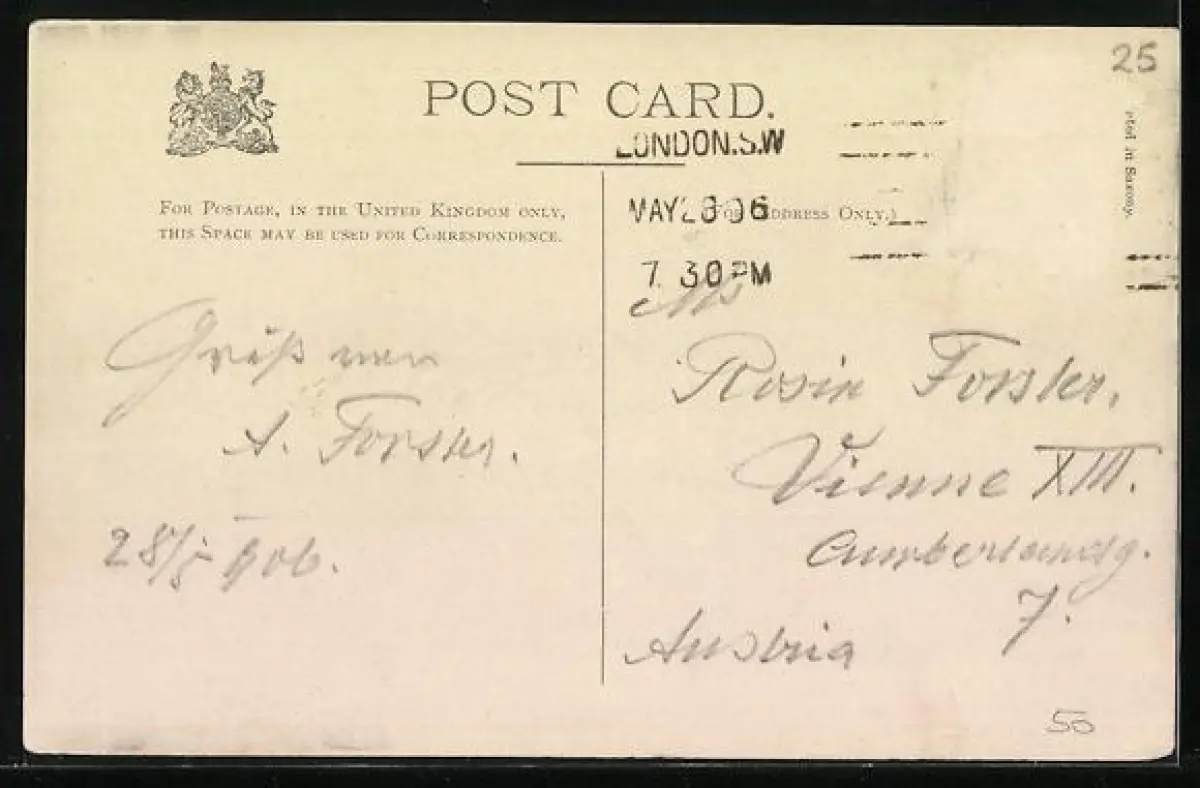 25
POST CARD.
LONDON.S.W
MAY 28 06
7 30 PM
FOR POSTAGE, IN THE UNITED KINGDOM ONLY,
THIS SPACE MAY BE USED FOR CORRESPONDENCE.
(FOR ADDRESS ONLY.)
nted in Saxony.
Gruß
A. Forster.
28/5 906.
Rosin Forster.
Vienne XIII.
Cumberlandg.
7.
Austria
50